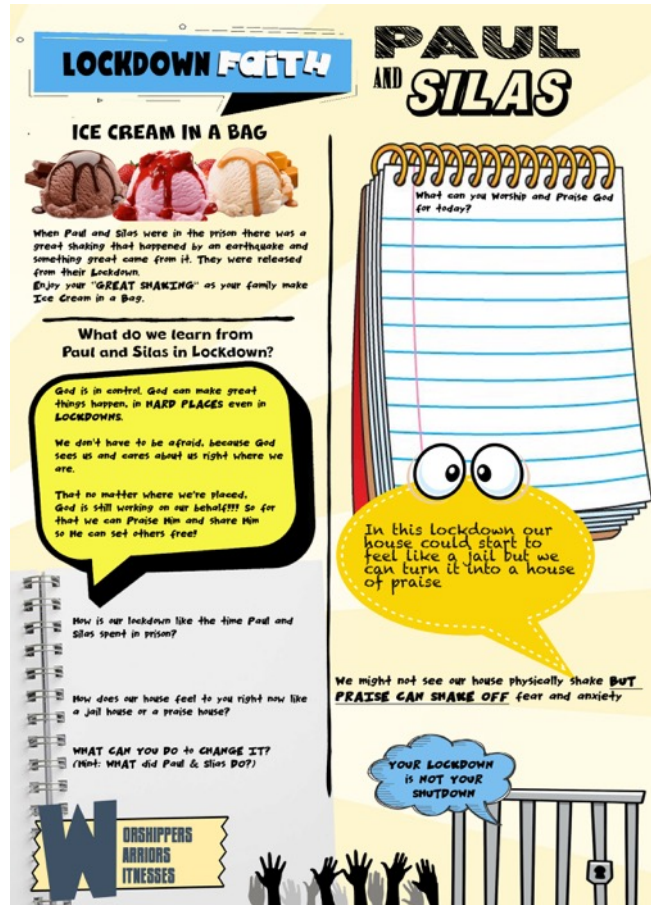 LOCKDOWN FAITH
PAUL
AND SILAS
ICE CREAM IN A BAG
When Paul and Silas were in the prison there was a
great shaking that happened by an earthquake and
something great came from it. They were released
from their Lockdown.
Enjoy your "GREAT SHAKING" as your family make
Ice Cream in a Bag.
What do we learn from
Paul and Silas in Lockdown?
God is in control. God can make great
things happen, in HARD PLACES even in
LOCKDOWNS.
We don't have to be afraid, because God
sees us and cares about us right where we
are.
That no matter where we're placed,
God is still working on our behalf!!! So for
that we can Praise Him and share Him
so He can set others free!
How is our lockdown like the time Paul and
Silas spent in prison?
How does our house feel to you right now like
a jail house or a praise house?
WHAT CAN YOU DO to CHANGE IT?
(Hint: WHAT did Paul & Slias DO?)
WORSHIPPERS
ARRIORS
ITNESSES
What can you Worship and Praise God
for today?
In this lockdown our
house could start to
feel like a jail but we
can turn it into a house
of praise
We might not see our house physically shake BUT
PRAISE CAN SHAKE OFF fear and anxiety
YOUR LOCKDOWN
is NOT YOUR
SHUTDOWN